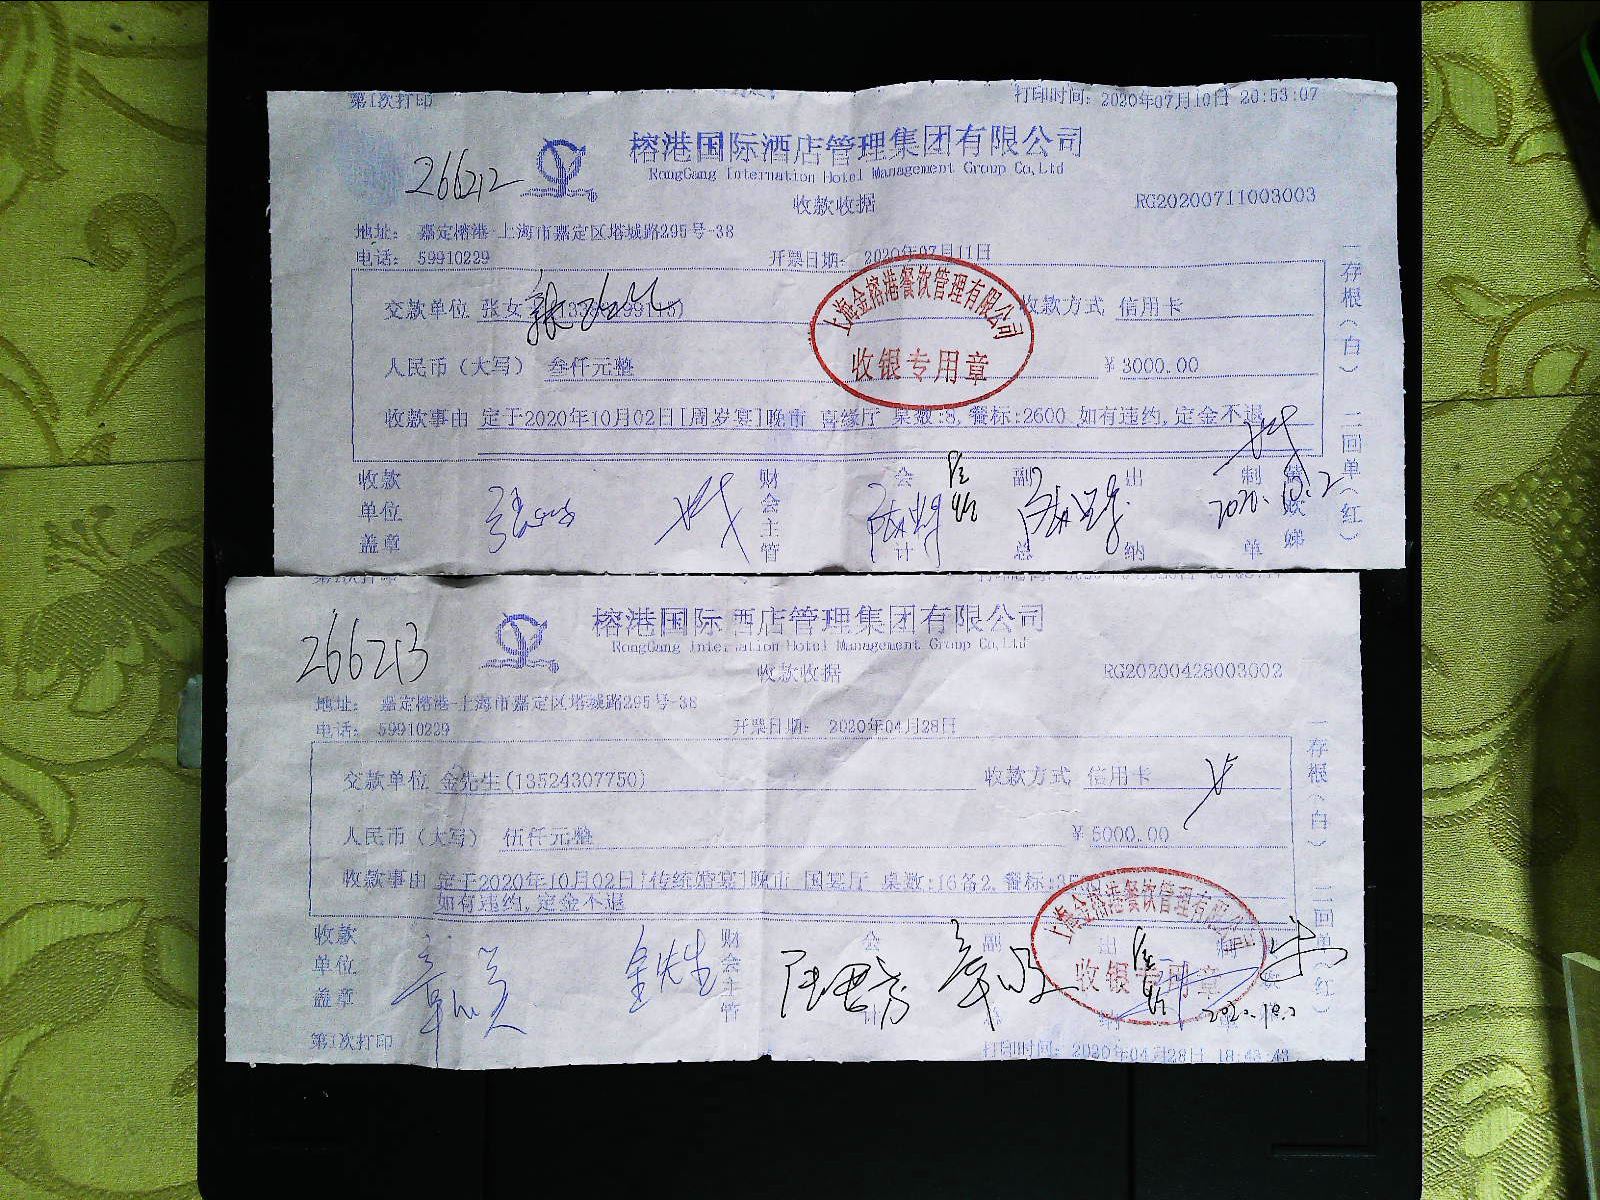 第1次打印 打印时间: 2020年07月10日 20:53:07
266212
榕港国际酒店管理集团有限公司
RongGang Internation Hotel Management Group Co,Ltd
收款收据 RG20200711003003
地址: 嘉定榕港-上海市嘉定区塔城路295号-38
电话: 59910229 开票日期: 2020年07月11日
交款单位 张女 收款方式 信用卡
上海金榕港餐饮管理有限公司
收银专用章
人民币(大写) 叁仟元整 ¥ 3000.00
收款事由 定于2020年10月02日[周岁宴]晚市 喜缘厅 桌数:8, 餐标:2600 如有违约, 定金不退
收款单位盖章 财会主管 会计 副总 出纳 制单
2020.10.2
一存根(白) 二回单(红)
266213
榕港国际酒店管理集团有限公司
RongGang Internation Hotel Management Group Co,Ltd
收款收据 RG20200428003002
地址: 嘉定榕港-上海市嘉定区塔城路295号-38
电话: 59910229 开票日期: 2020年04月28日
交款单位 金先生(13524307750) 收款方式 信用卡
人民币(大写) 伍仟元整 ¥ 5000.00
收款事由 定于2020年10月02日[传统婚宴]晚市 国宴厅 桌数:16备2, 餐标:
如有违约, 定金不退
上海金榕港餐饮管理有限公司
收银专用章
收款单位盖章 金先生 财会主管 会计 副 出纳
2020.10.2
一存根(白) 二回单(红)
第1次打印 打印时间: 2020年04月28日 18:43:43